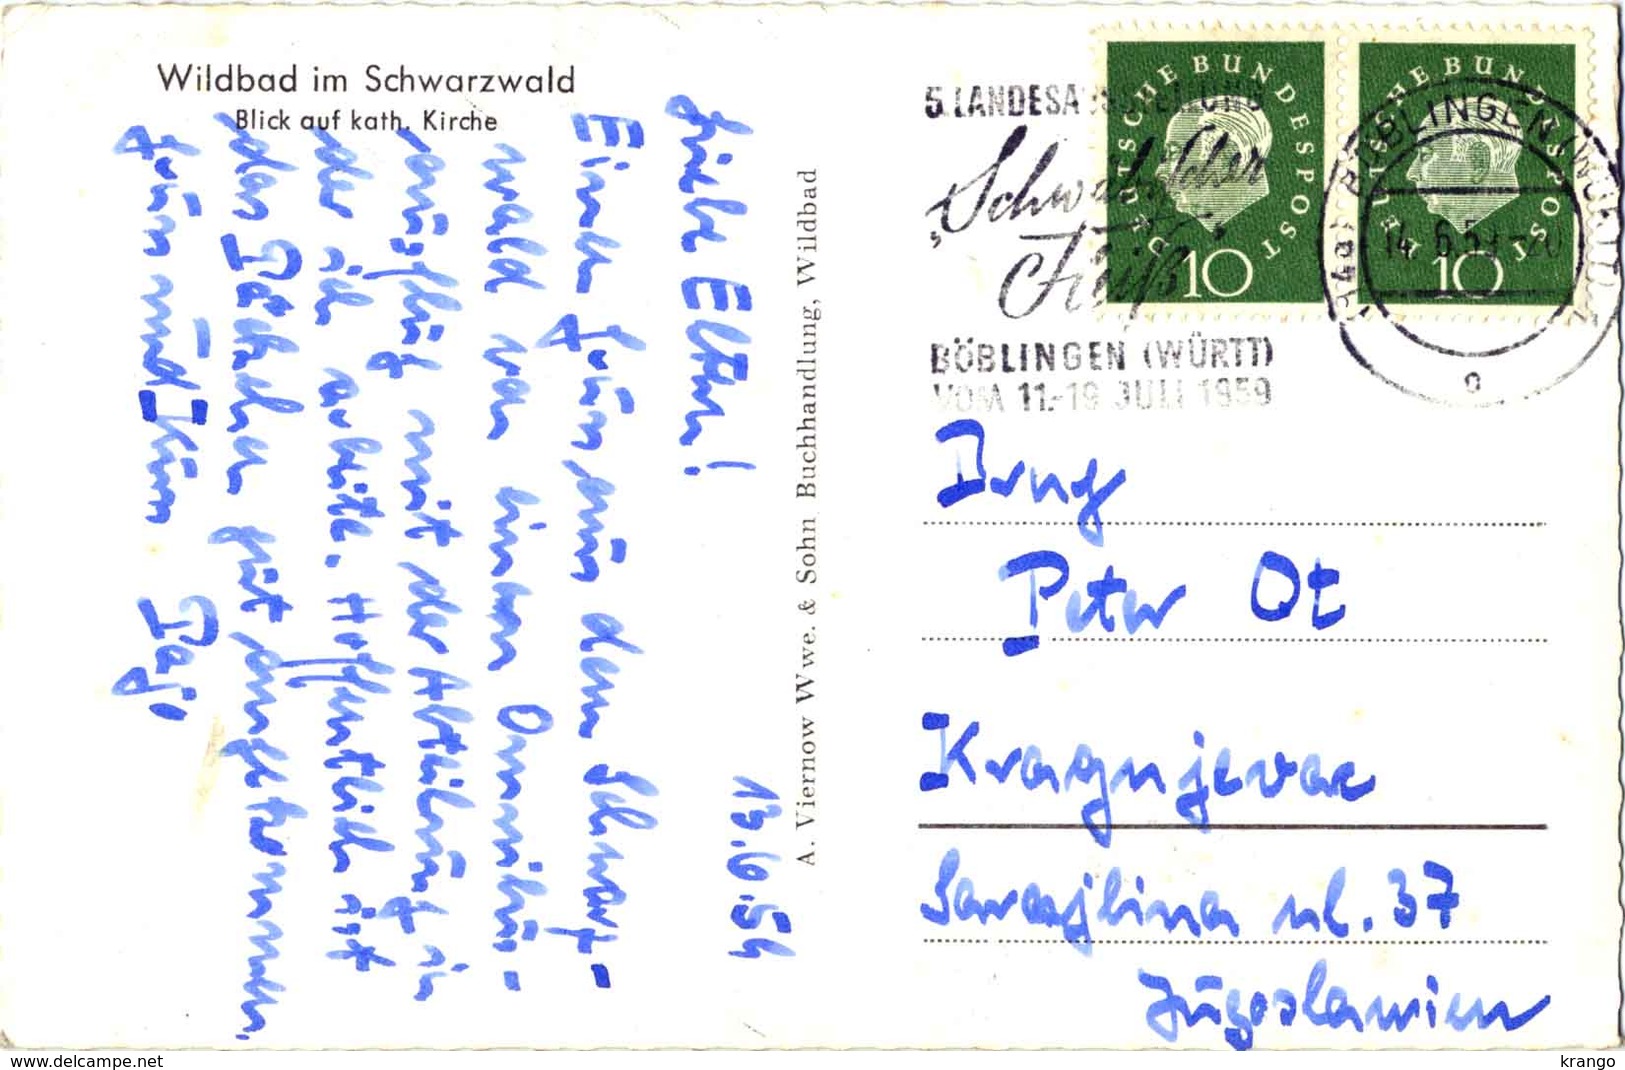 Wildbad im Schwarzwald
Blick auf kath. Kirche
13.6.59
Liebe Eltern!
Einen Gruß aus dem Schwarz-
wald von einem Omnibus-
ausflug mit der Abteilung in
der ich arbeite. Hoffentlich ist
das Päckchen gut angekommen.
Gruß und Kuss
A. Viernow Wwe. & Sohn Buchhandlung, Wildbad
5. LANDESAUSSTELLUNG
„Schwäbischer
Fleiß"
BÖBLINGEN (WÜRTT)
VOM 11.-19 JULI 1959
DEUTSCHE BUNDESPOST
10
DEUTSCHE BUNDESPOST
10
BÖBLINGEN (WÜRTT)
14.6.59-20
a
Ing
Peter Ot
Kragujevac
Sarajlina ul. 37
Jugoslawien
www.delcampe.net
krango